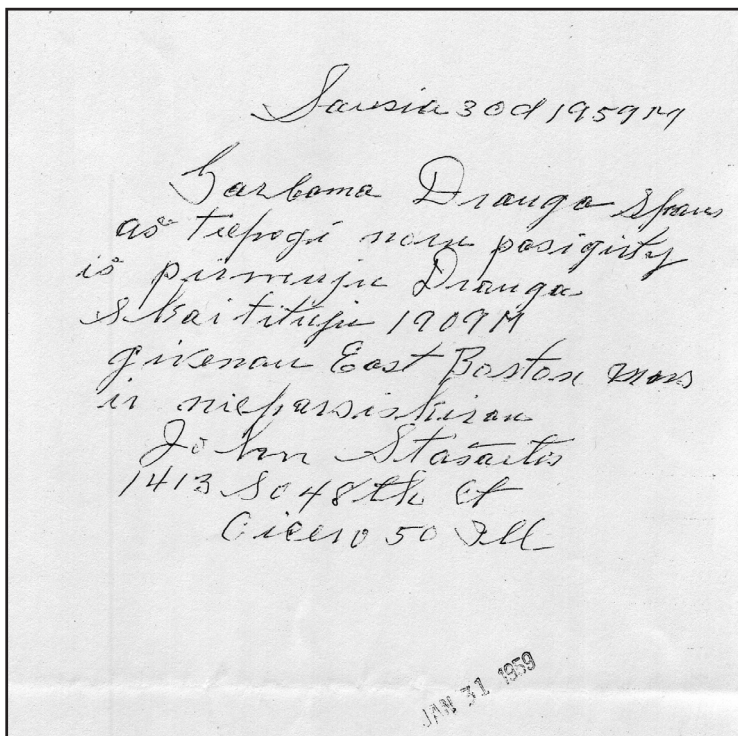 Sausia 30d 1959M
Garbama Drauga
aš tiepogi noru pasigirty
iš pirmuju Drauga
skaitituju 1909M
givenau East Boston Mass
ir niepar
John Stašaitis
1413 So 48th Ct
Cicero 50 Ill
JAN 31 1959